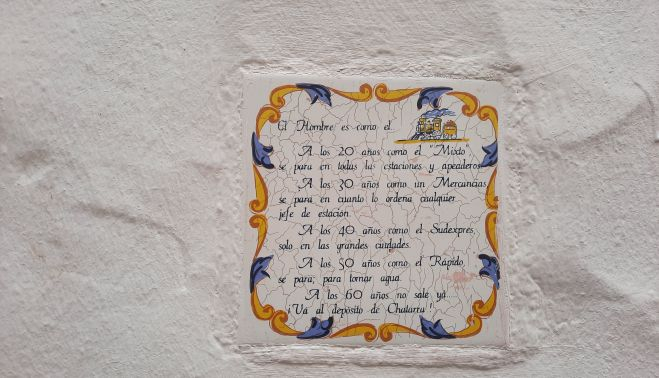 El Hombre es como el...
A los 20 años como el "Mixto"
se para en todas las estaciones y apeaderos
A los 30 años como un Mercancias
se para en cuanto lo ordena cualquier
jefe de estación
A los 40 años como el Sudexpres,
solo en las grandes ciudades.
A los 50 años como el Rápido,
se para; para tomar agua.
A los 60 años no sale ya....
¡Va al depósito de Chatarra!